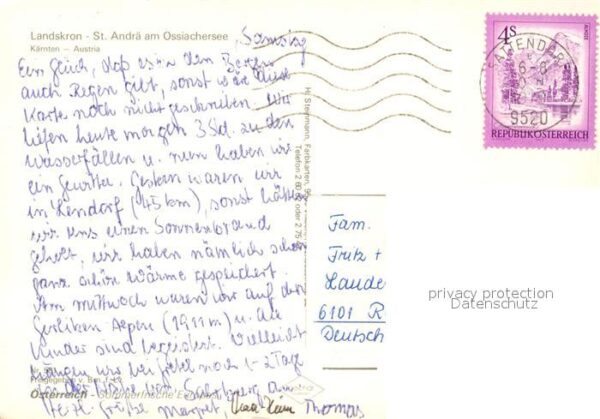 Landskron - St. Andrä am Ossiachersee
Kärnten - Austria
Samstag
Ein Glück, daß es in den Bergen
auch Regen gibt, sonst wäre diese
Karte noch nicht geschrieben. Wir
liefen heute morgen 3 Std. zu den
Wasserfällen u. nun haben wir
ein Gewitter. Gestern waren wir
in Lendorf (45 km), sonst hätten
wir uns einen Sonnenbrand
geholt, wir haben nämlich schon
ganz schön Wärme gespeichert.
Am Mittwoch waren wir auf der
Gerlitzen Alpen (1911 m) u. die
Kinder sind begeistert. Vielleicht
hängen wir bei noch 1-2 Tage
in der Nähe von Salzburg
Grüße Margret, Thomas
Freigegeben v. Bm. f. Lv.
Österreich -
H. Steinmann, Farbkarten,
Telefon 2 60 oder 2 75
4S
REPUBLIK ÖSTERREICH
9520
Fam.
Fritz +
Laude
6101 R
Deutsch
privacy protection
Datenschutz